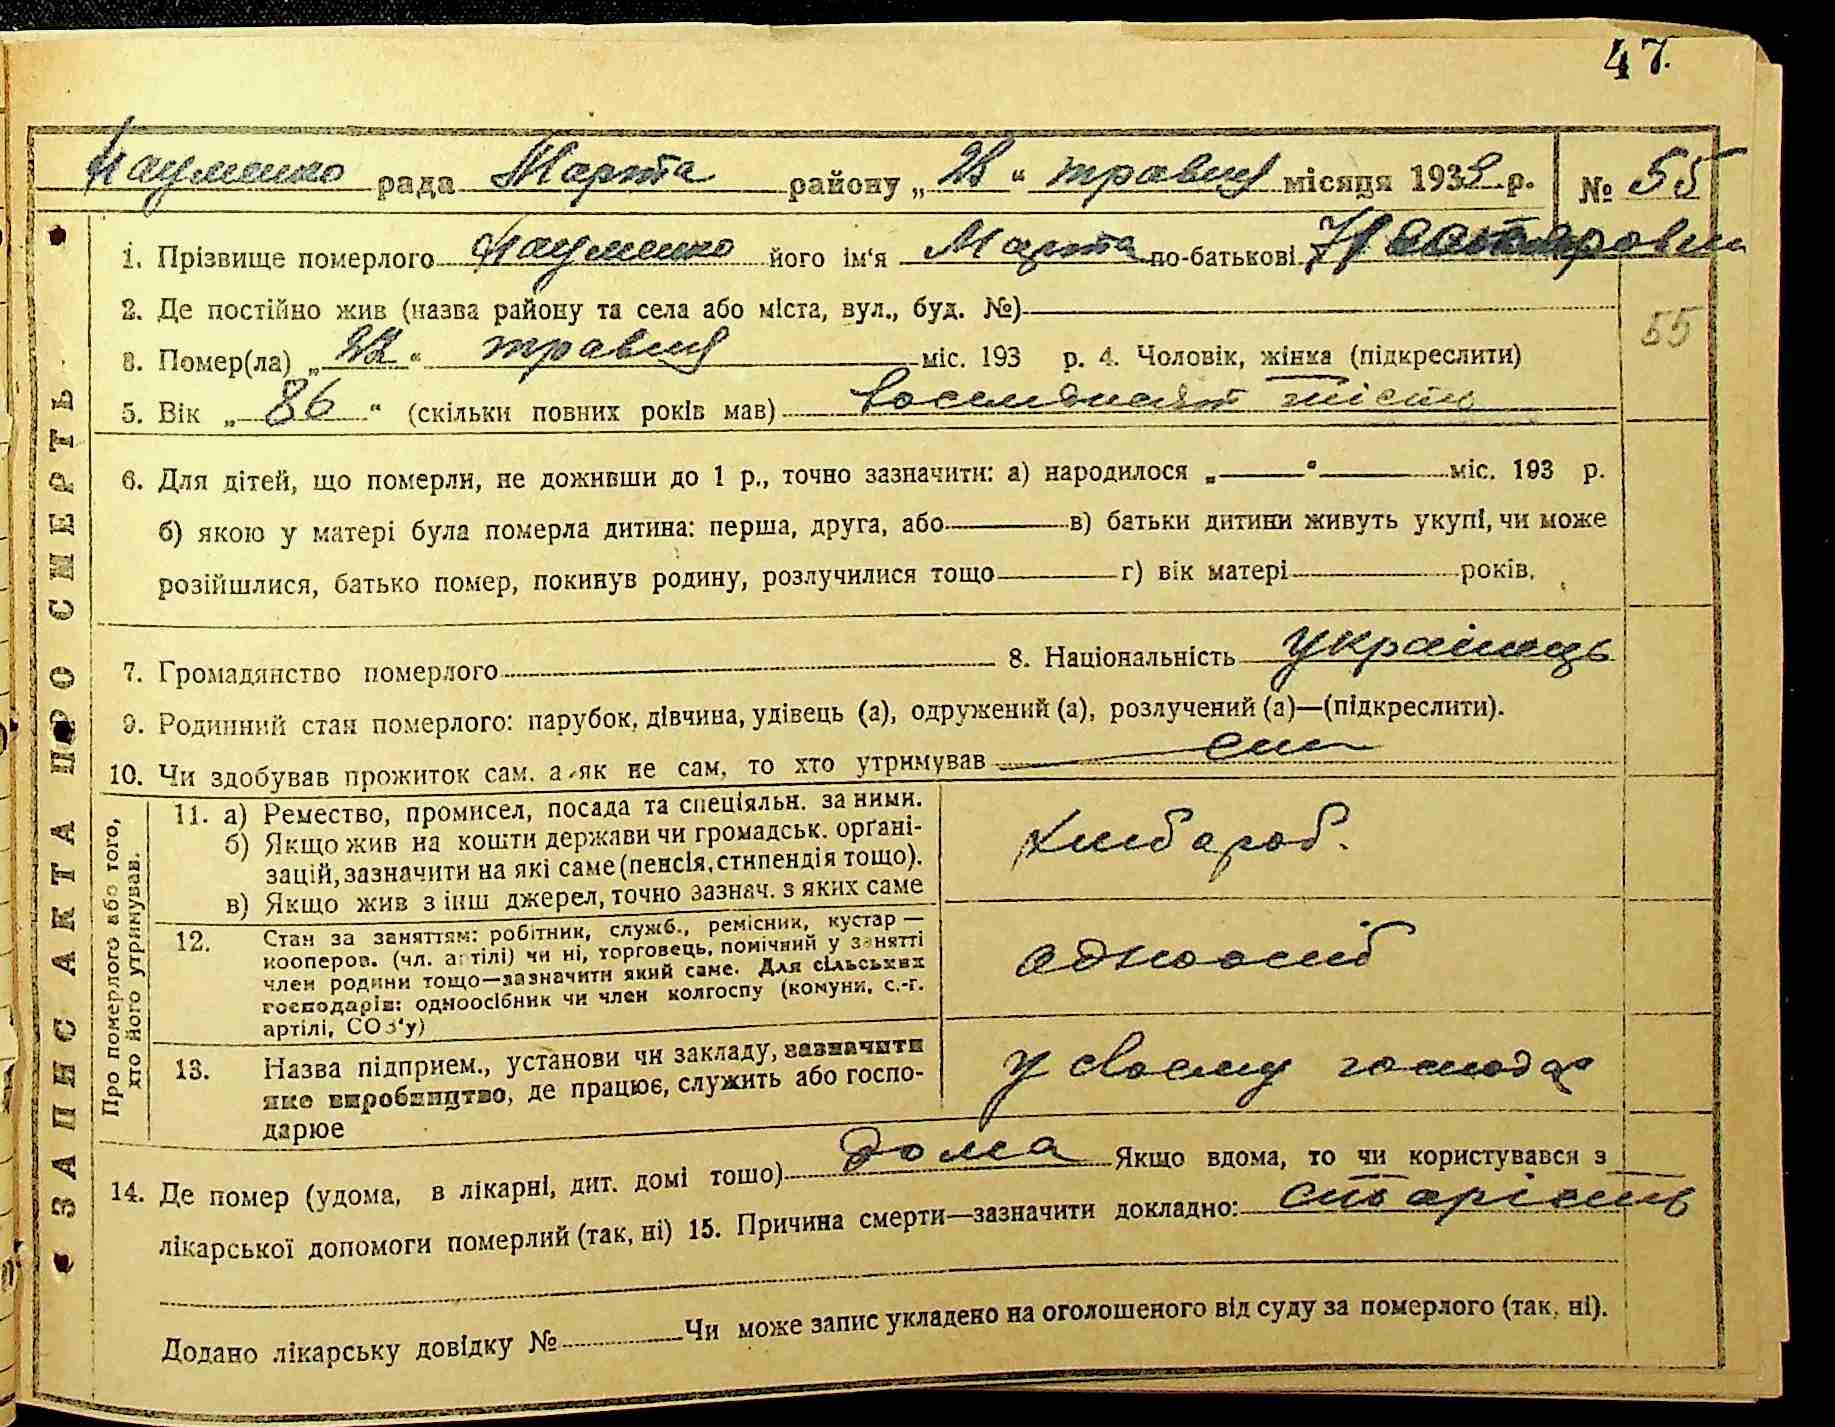 47.
Науменко рада Марта району „ “ травня місяця 1933 р. № 55
ЗАПИС АКТА ПРО СМЕРТЬ
1. Прізвище померлого Науменко його ім'я Марта по-батькові
2. Де постійно жив (назва району та села або міста, вул., буд. №)
55
3. Помер(ла) „ “ травня міс. 193 р. 4. Чоловік, жінка (підкреслити)
5. Вік „ 86 “ (скільки повних років мав) восемдесят шість
6. Для дітей, що померли, не доживши до 1 р., точно зазначити: а) народилося „ “ міс. 193 р.
б) якою у матері була померла дитина: перша, друга, або в) батьки дитини живуть укупі, чи може
розійшлися, батько помер, покинув родину, розлучилися тощо г) вік матері років.
7. Громадянство померлого 8. Національність українець
9. Родинний стан померлого: парубок, дівчина, удівець (а), одружений (а), розлучений (а)—(підкреслити).
10. Чи здобував прожиток сам, а як не сам, то хто утримував син
Про померлого або того,
хто його утримував.
11. а) Ремество, промисел, посада та спеціяльн. за ними.
б) Якщо жив на кошти держави чи громадськ. орґані-
зацій, зазначити на які саме (пенсія, стипендія тощо).
в) Якщо жив з інш джерел, точно зазнач. з яких саме
хлібароб.
12. Стан за заняттям: робітник, служб., ремісник, кустар —
кооперов. (чл. артілі) чи ні, торговець, помічний у занятті
член родини тощо—зазначити який саме. Для сільських
господарів: одноосібник чи член колгоспу (комуни, с.-г.
артілі, СОЗ'у)
одноосіб
13. Назва підприєм., установи чи закладу, зазначити
яке виробництво, де працює, служить або госпо-
дарює
у своєму господар
14. Де помер (удома, в лікарні, дит. домі тошо) дома Якщо вдома, то чи користувався з
лікарської допомоги померлий (так, ні) 15. Причина смерти—зазначити докладно: старість
Додано лікарську довідку № Чи може запис укладено на оголошеного від суду за померлого (так, ні).